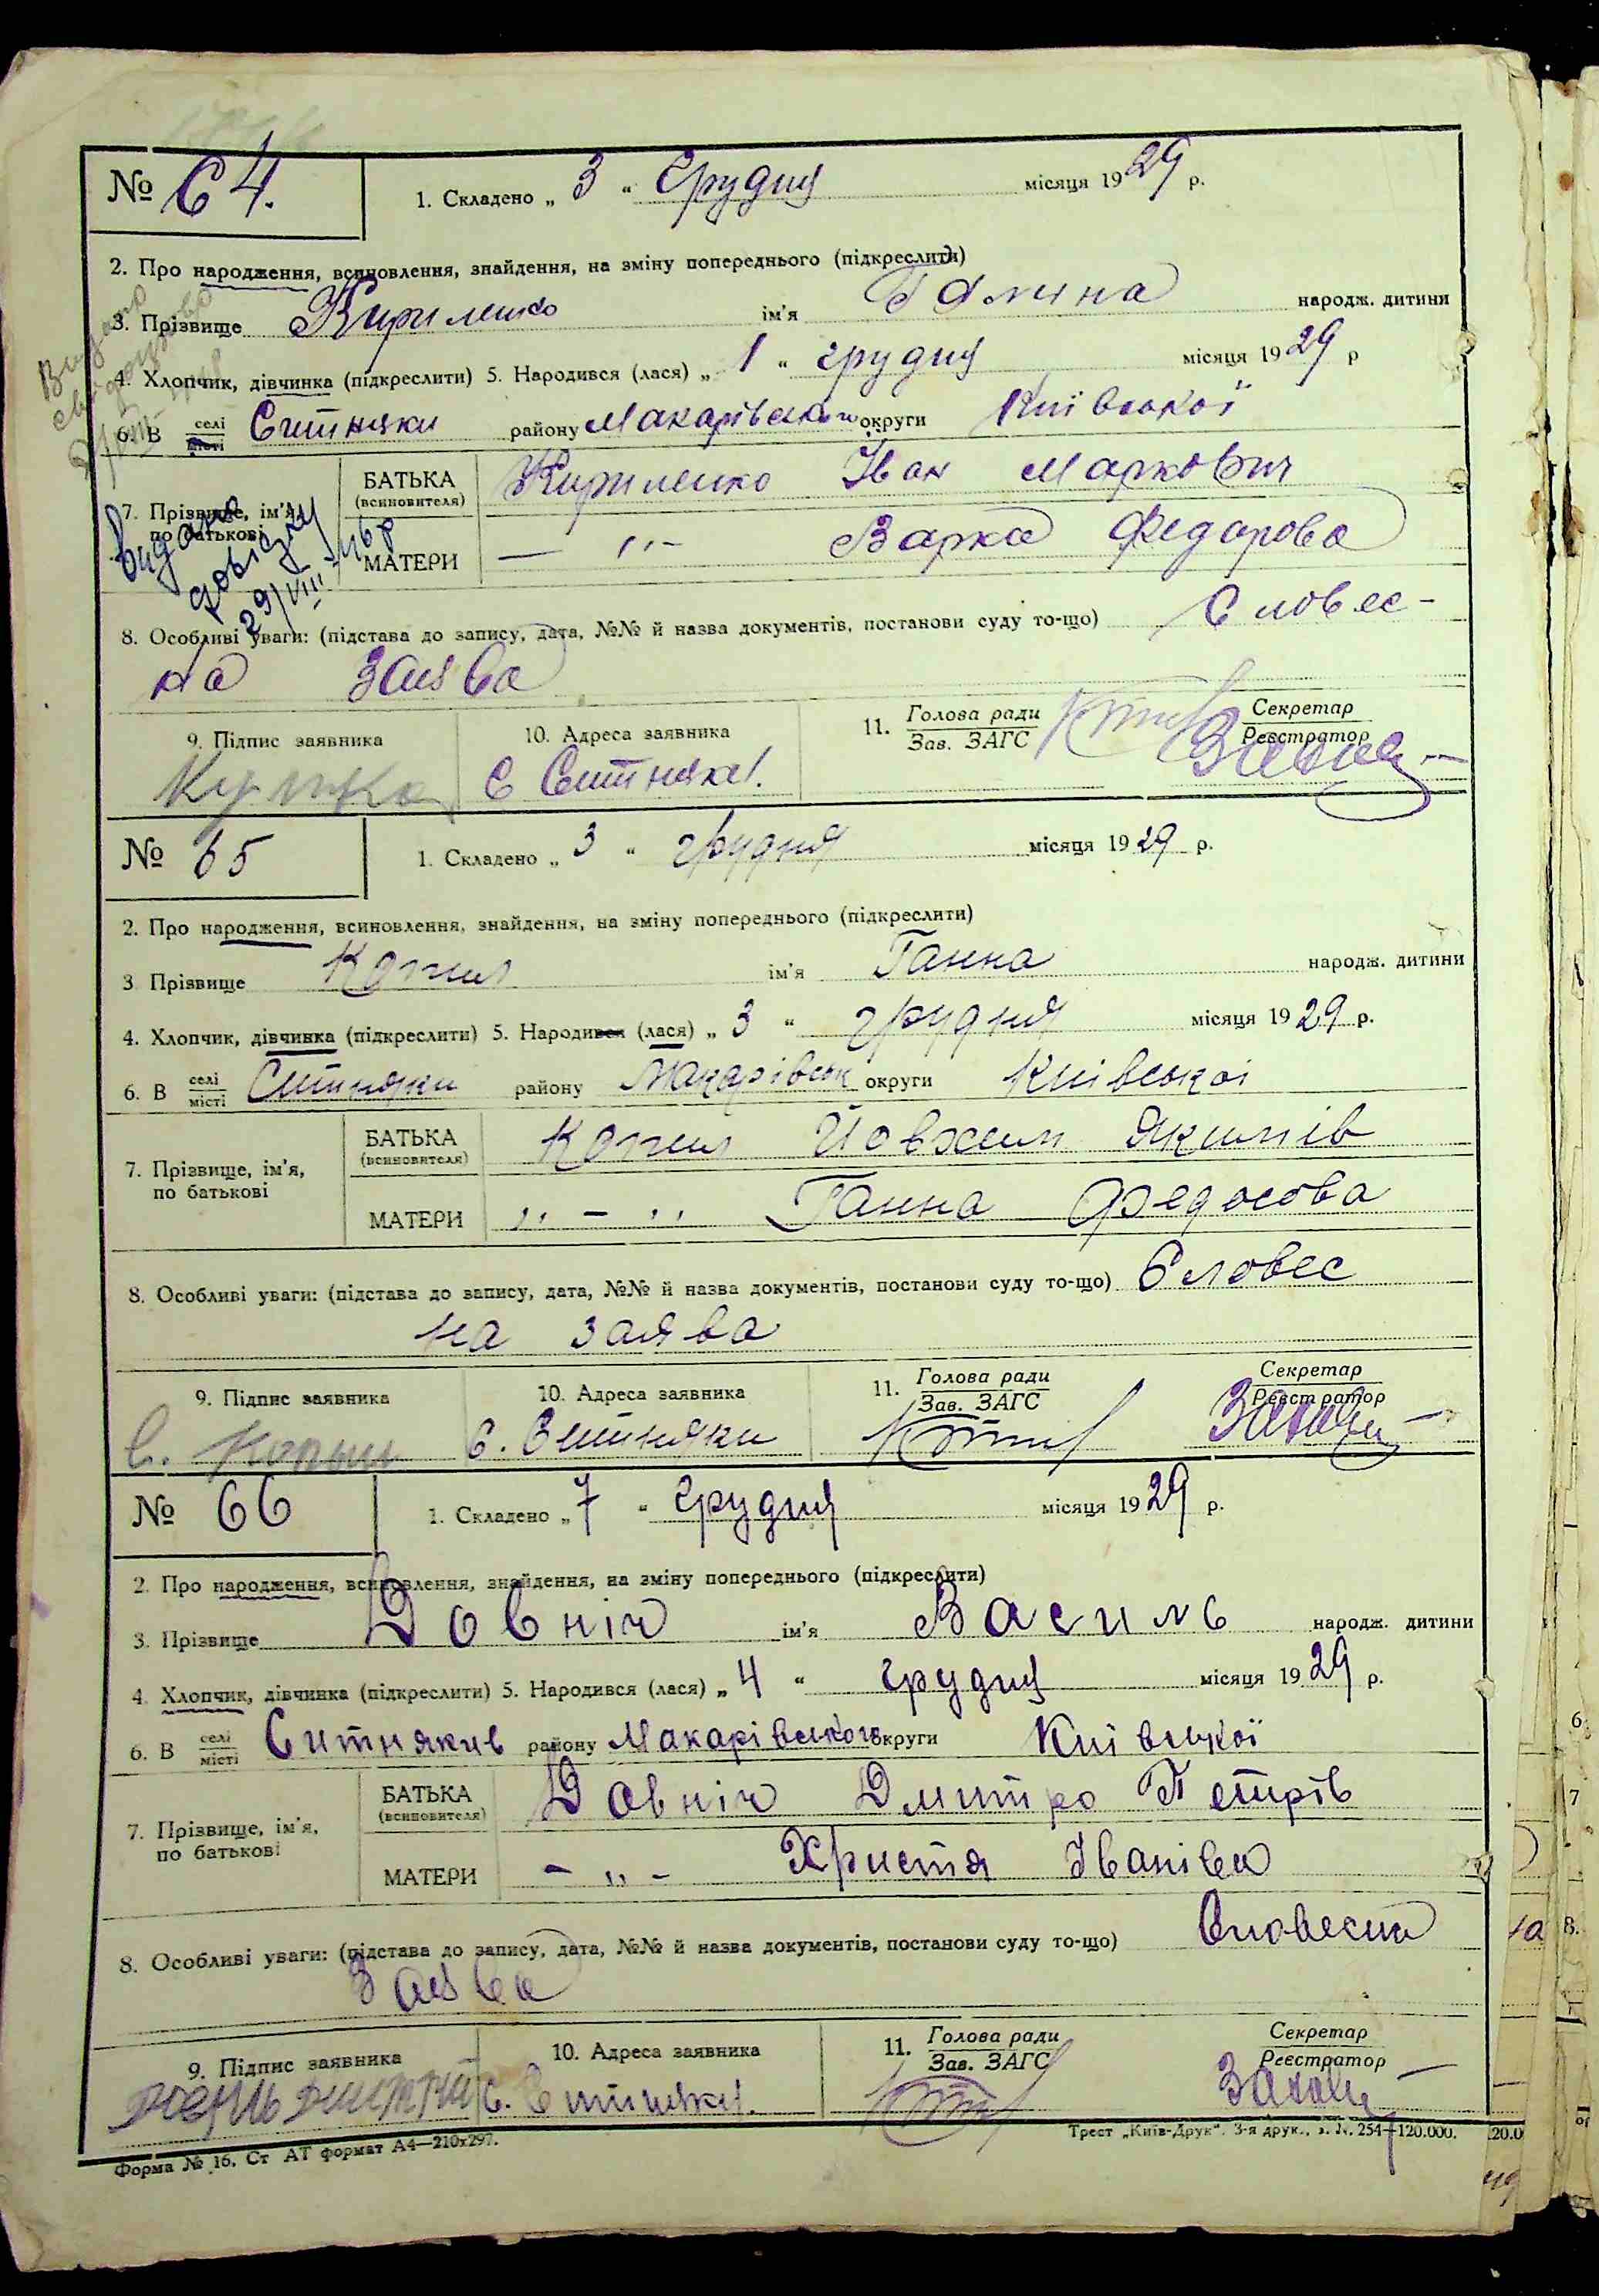 № 64.
1. Складено „ 3 “ Грудня місяця 1929 р.
2. Про народження, всиновлення, знайдення, на зміну попереднього (підкреслити)
3. Прізвище Кириленко ім'я Галина народж. дитини
4. Хлопчик, дівчинка (підкреслити) 5. Народився (лася) „ 1 “ грудня місяця 1929 р
6. В селі місті Ситняки району Макарівського округи Київської
7. Прізвище, ім'я, по батькові
БАТЬКА (всиновителя) Кириленко Іван Маркович
МАТЕРИ — ,,- Варка Федарова
Видано довідку 29/VIII-46р
8. Особливі уваги: (підстава до запису, дата, №№ й назва документів, постанови суду то-що) Словес-
на Заява
9. Підпис заявника
10. Адреса заявника
11. Голова ради Зав. ЗАГС
Секретар Реєстратор
с Ситняки.
№ 65
1. Складено „ 3 “ грудня місяця 1929 р.
2. Про народження, всиновлення, знайдення, на зміну попереднього (підкреслити)
3. Прізвище Копил ім'я Ганна народж. дитини
4. Хлопчик, дівчинка (підкреслити) 5. Народився (лася) „ 3 “ грудня місяця 1929 р.
6. В селі місті Ситняки району Макарівськ округи Київської
7. Прізвище, ім'я, по батькові
БАТЬКА (всиновителя) Копил Йовхим Якимів
МАТЕРИ ,, - ,, Ганна Федосова
8. Особливі уваги: (підстава до запису, дата, №№ й назва документів, постанови суду то-що) Словес
на заява
9. Підпис заявника
10. Адреса заявника
11. Голова ради Зав. ЗАГС
Секретар Реєстратор
Копыл
с. Ситняки
№ 66
1. Складено „ 7 “ Грудня місяця 1929 р.
2. Про народження, всиновлення, знайдення, на зміну попереднього (підкреслити)
3. Прізвище Довніч ім'я Василь народж. дитини
4. Хлопчик, дівчинка (підкреслити) 5. Народився (лася) „ 4 “ грудня місяця 1929 р.
6. В селі місті Ситняків району Макарівського округи Київської
7. Прізвище, ім'я, по батькові
БАТЬКА (всиновителя) Довніч Дмитро Петрів
МАТЕРИ - ,, - Христя Іванівна
8. Особливі уваги: (підстава до запису, дата, №№ й назва документів, постанови суду то-що) Словесна
Заява
9. Підпис заявника
10. Адреса заявника
11. Голова ради Зав. ЗАГС
Секретар Реєстратор
с. Ситняки.
Форма № 16. Ст АТ формат А4—210х297.
Трест „Київ-Друк“. 3-я друк., з. №. 254—120.000.